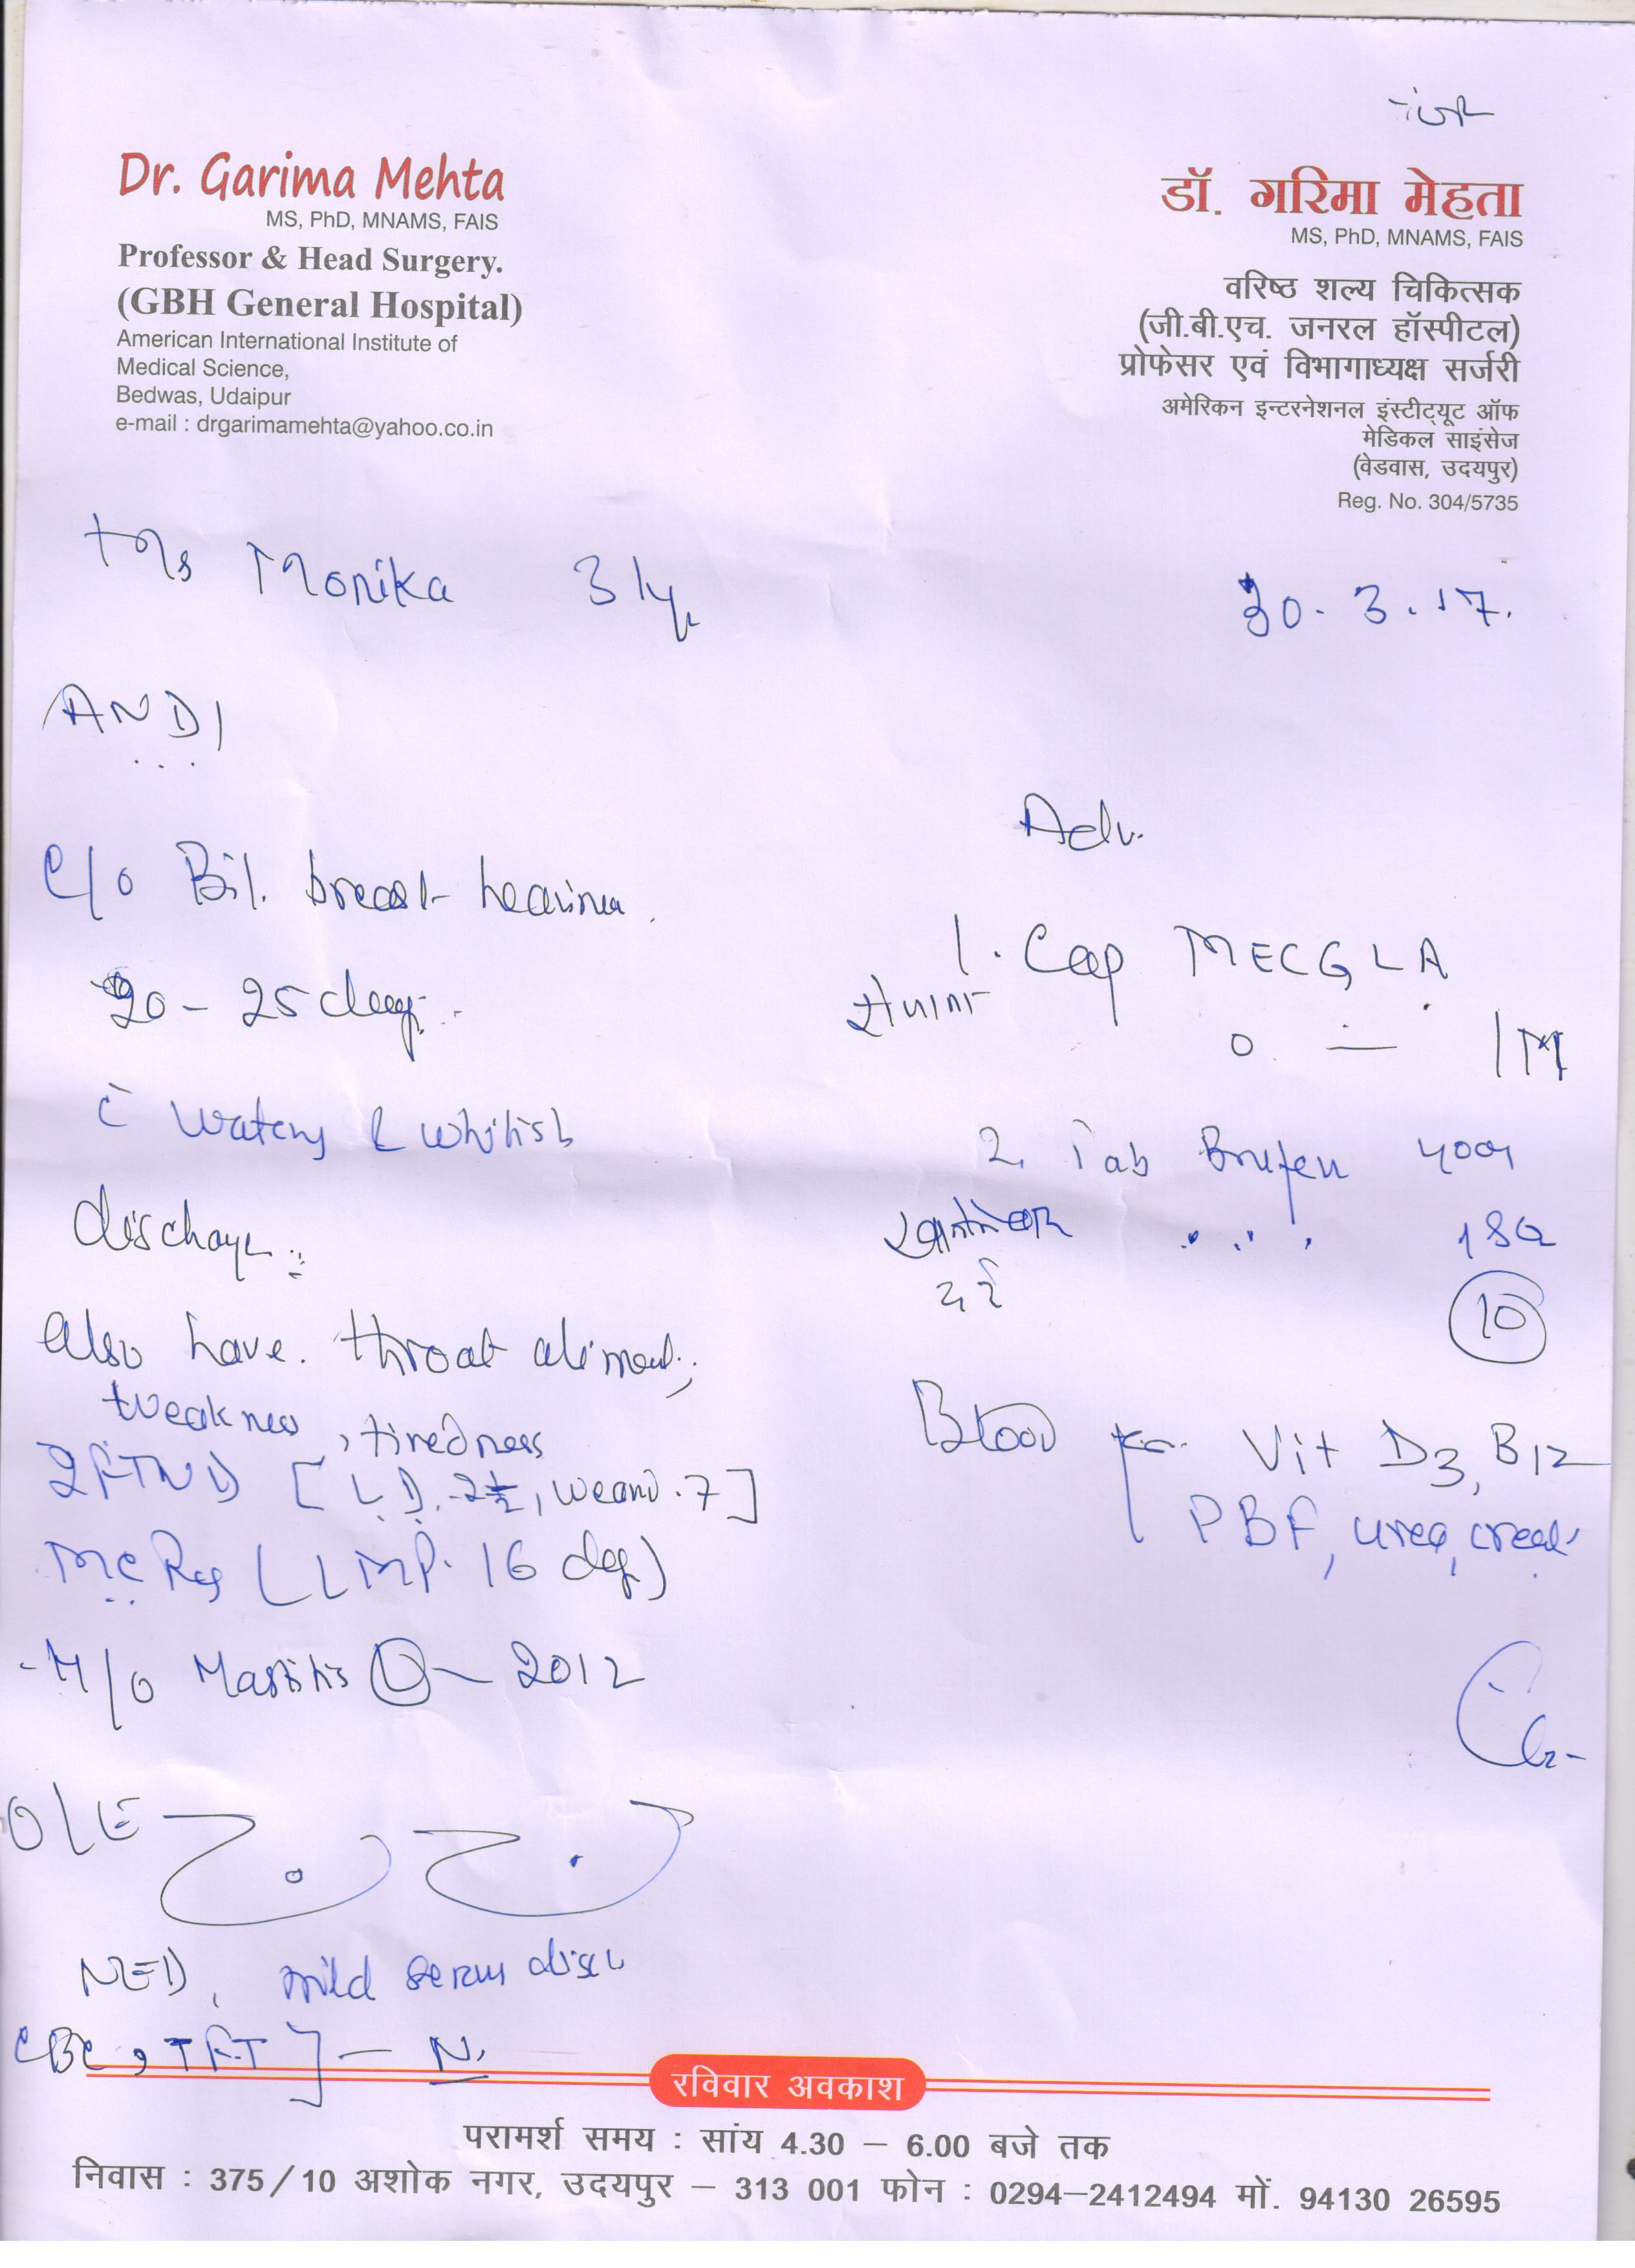 Dr. Garima Mehta
MS, PhD, MNAMS, FAIS
Professor & Head Surgery.
(GBH General Hospital)
American International Institute of
Medical Science,
Bedwas, Udaipur
e-mail : drgarimamehta@yahoo.co.in
डॉ. गरिमा मेहता
MS, PhD, MNAMS, FAIS
वरिष्ठ शल्य चिकित्सक
(जी.बी.एच. जनरल हॉस्पीटल)
प्रोफेसर एवं विभागाध्यक्ष सर्जरी
अमेरिकन इन्टरनेशनल इंस्टीट्यूट ऑफ
मेडिकल साइंसेज
(वेडवास, उदयपुर)
Reg. No. 304/5735
Ms Monika 31y.
30.3.17.
ANDI
C/o Bil. breast
20-25 days
c watery & whitish
discharge
also have throat
weakness, tiredness
2FTND [L.D. 2½, 7]
MC Reg (LMP. 16 day)
H/o Mastitis L - 2012
O/E
NED, mild serous disch
CBC, TFT ] - N.
Adv.
1. Cap MECGLA
0 — 1M
2. Tab Brufen 400
दर्द
10
Blood for Vit D3, B12
PBF, urea, creat
रविवार अवकाश
परामर्श समय : सांय 4.30 – 6.00 बजे तक
निवास : 375/10 अशोक नगर, उदयपुर – 313 001 फोन : 0294–2412494 मों. 94130 26595